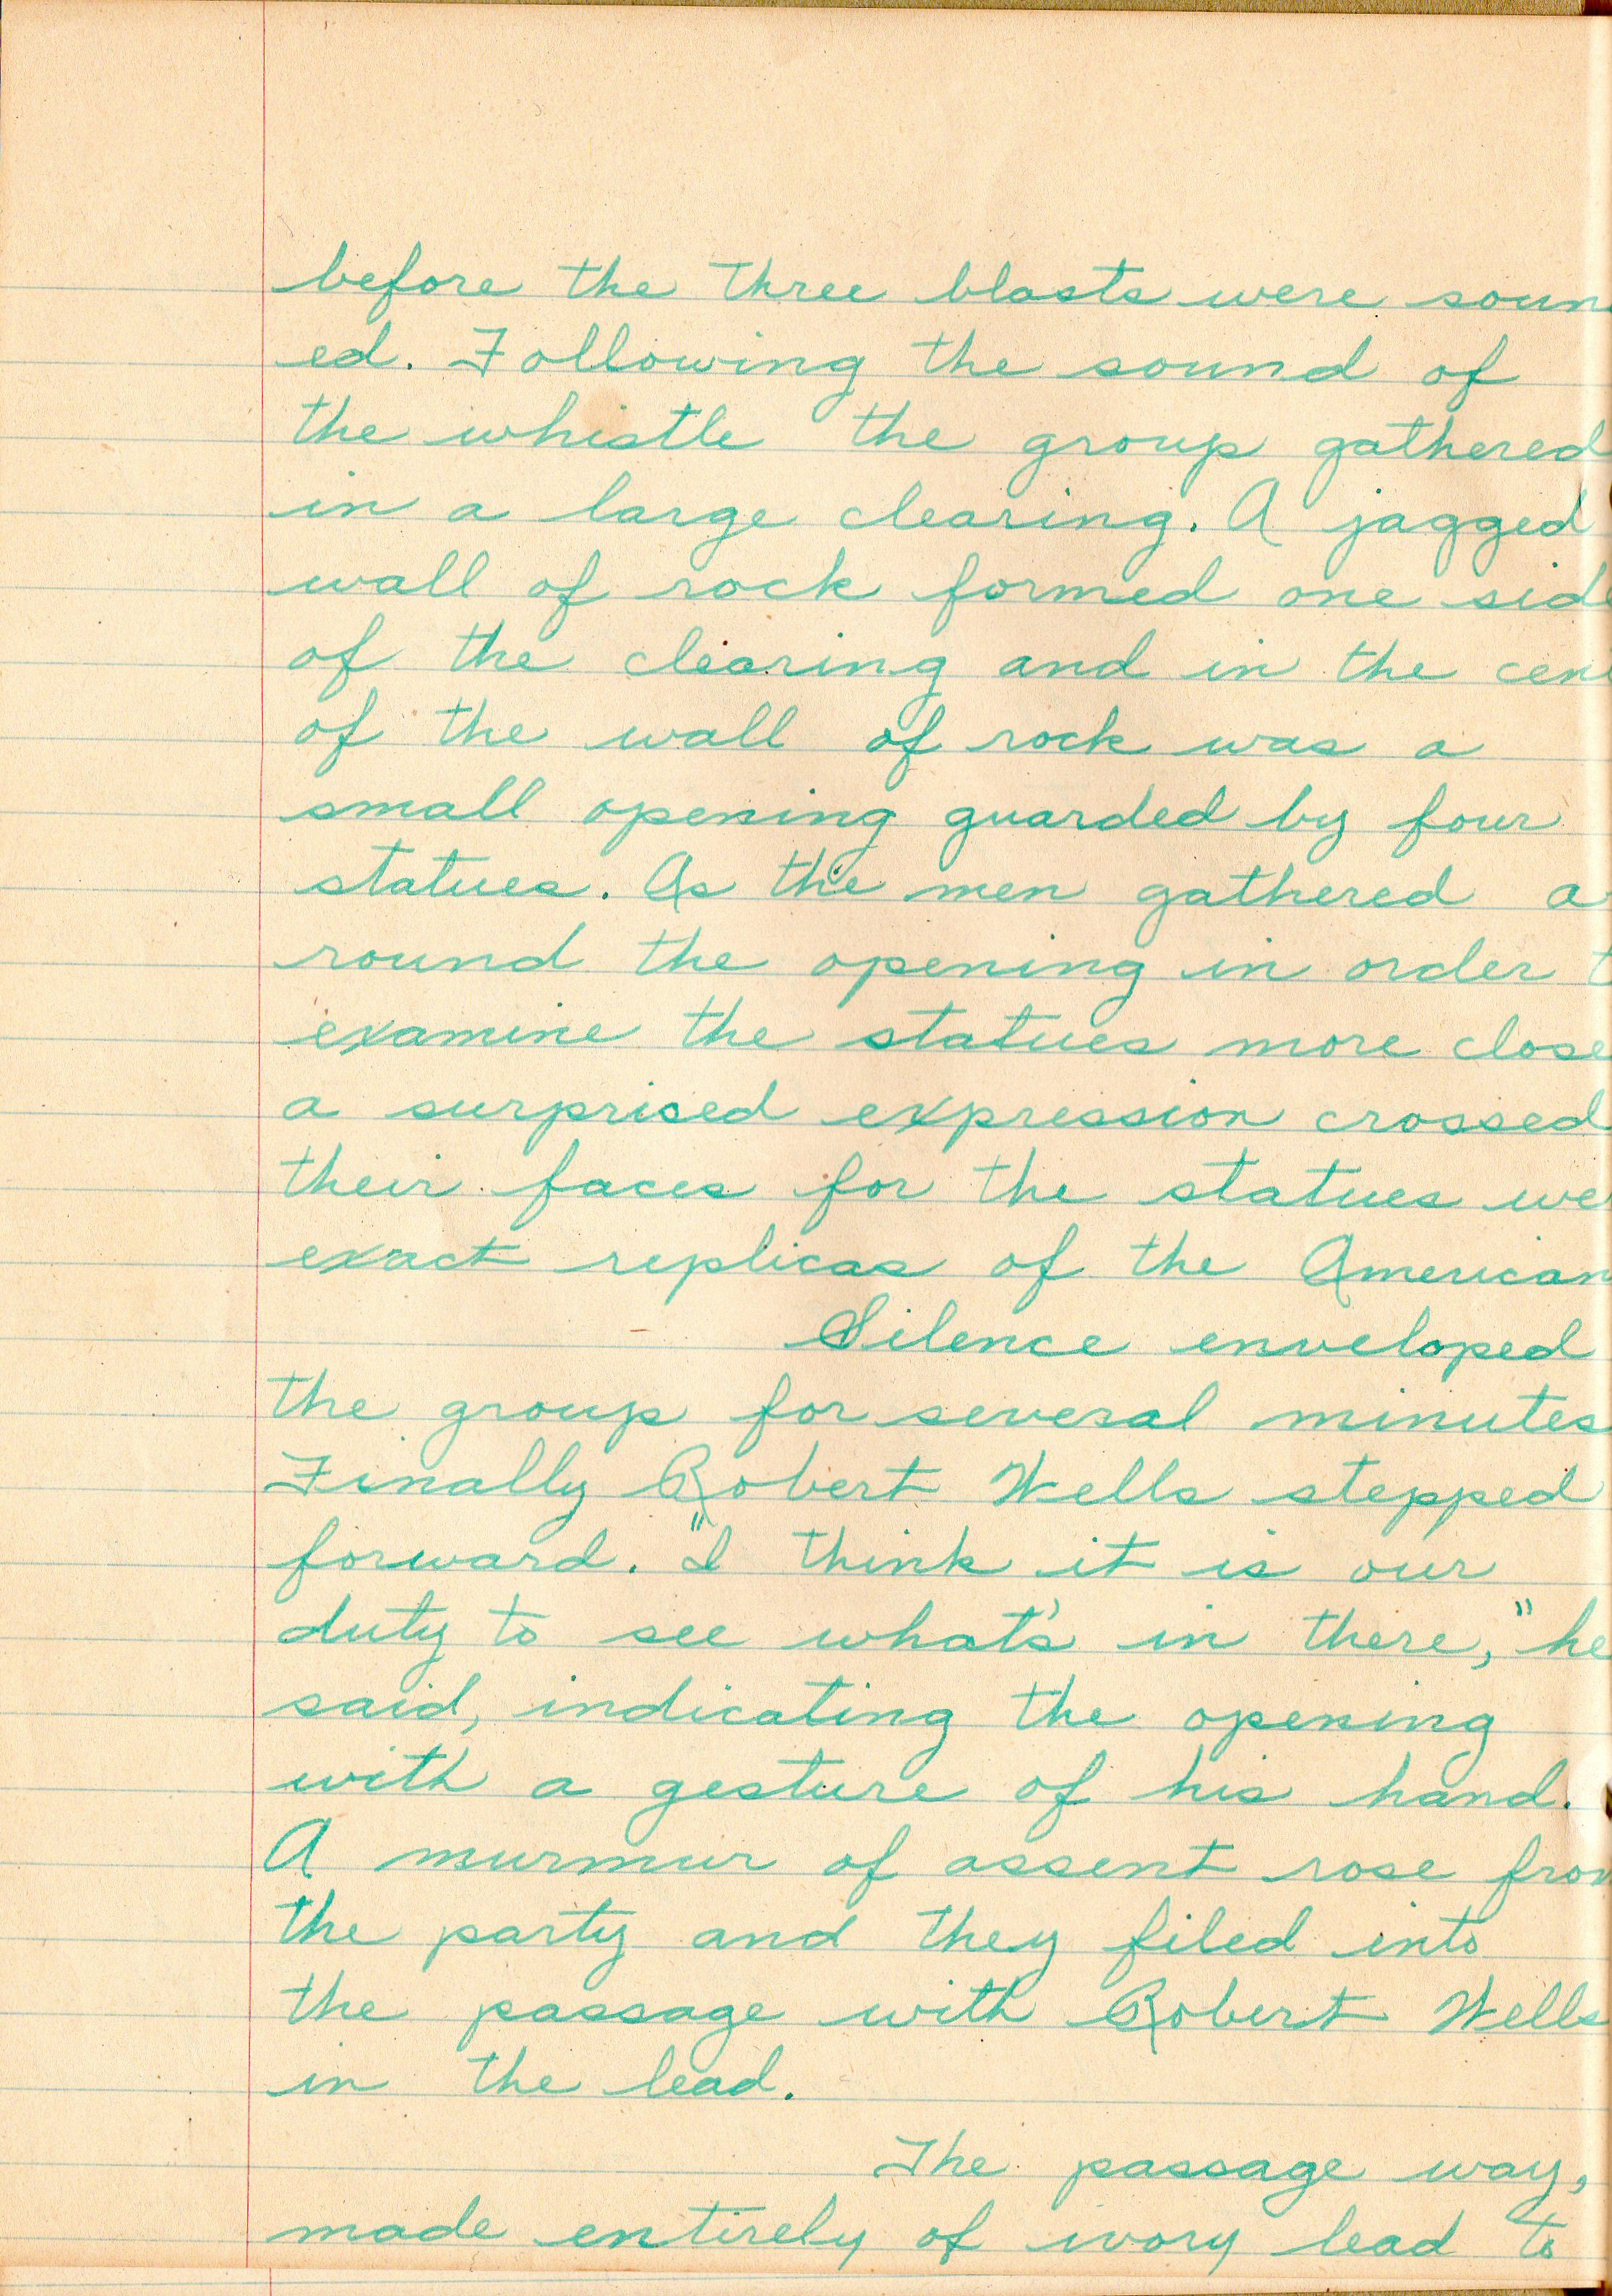 before the three blasts were soun
ed. Following the sound of
the whistle the group gathered
in a large clearing. A jagged
wall of rock formed one side
of the clearing and in the cen
of the wall of rock was a
small opening guarded by four
statues. As the men gathered a
round the opening in order t
examine the statues more close
a surprised expression crossed
their faces for the statues we
exact replicas of the American
Silence enveloped
the group for several minutes
Finally Robert Wells stepped
forward. "I think it is our
duty to see what's in there," he
said, indicating the opening
with a gesture of his hand.
A murmur of assent rose from
the party and they filed into
the passage with Robert Wells
in the lead.
The passage way,
made entirely of ivory lead to